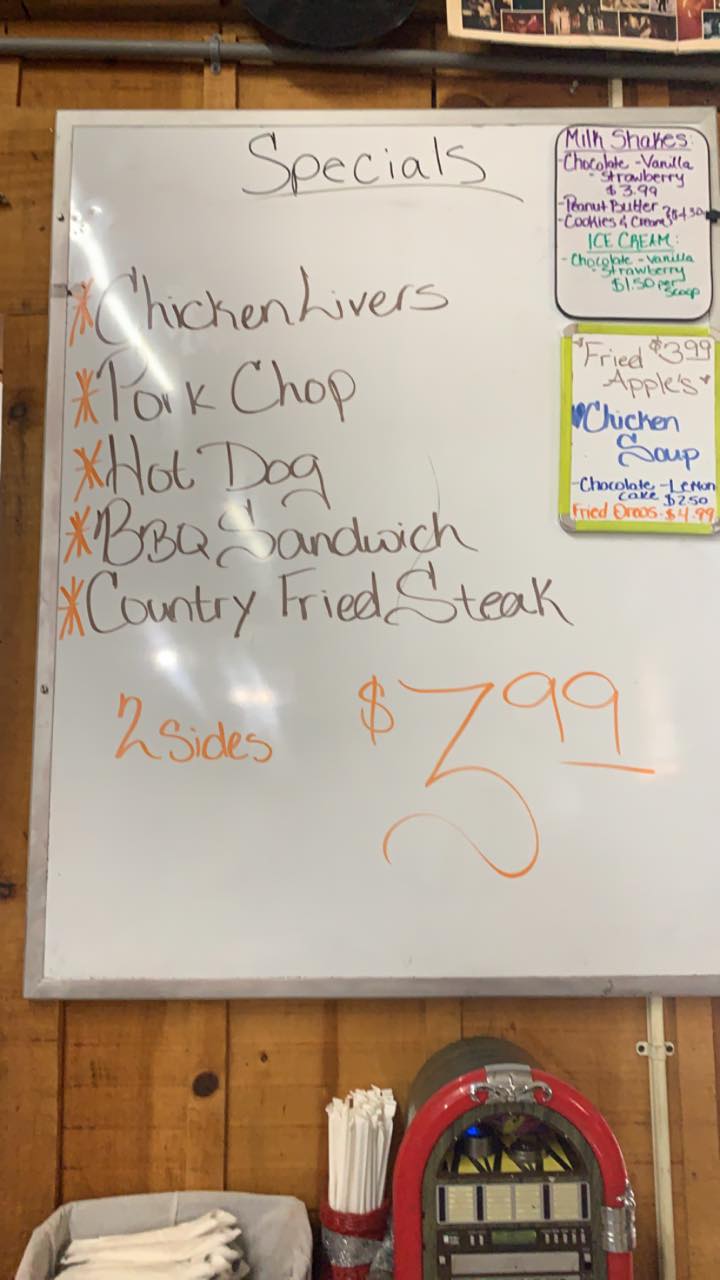 Specials
*Chicken Livers
*Pork Chop
*Hot Dog
*BBQ Sandwich
*Country Fried Steak
2 Sides $3 99
Milk Shakes:
-Chocolate -Vanilla
-Strawberry
$3.99
-Peanut Butter
-Cookies & Cream
ICE CREAM:
-Chocolate -Vanilla
-Strawberry
$1.50 per
scoop
Fried $3 99
Apple's
Chicken
Soup
-Chocolate -Lemon
cake $2.50
Fried Oreos-$4.99